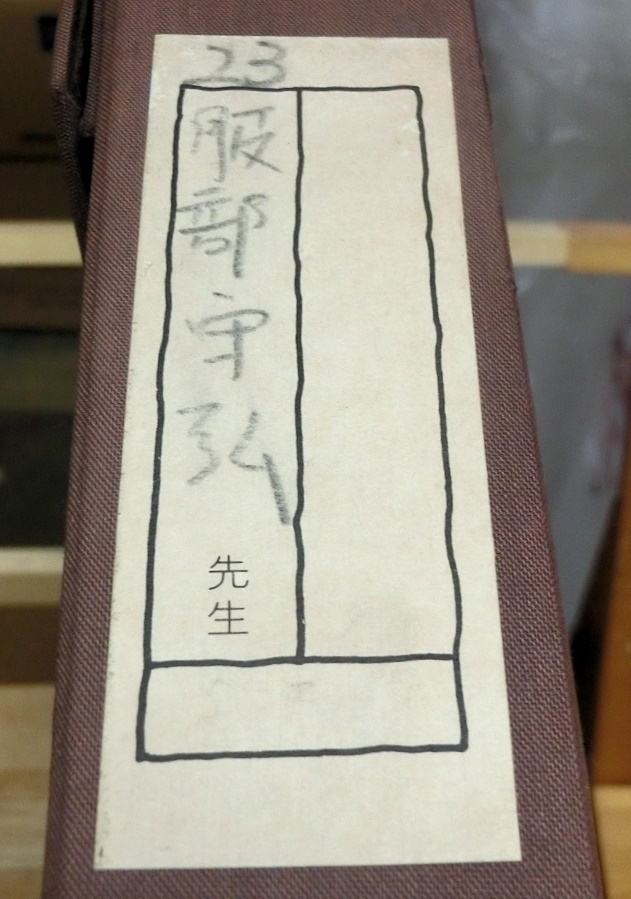 23
服部守弘
先生